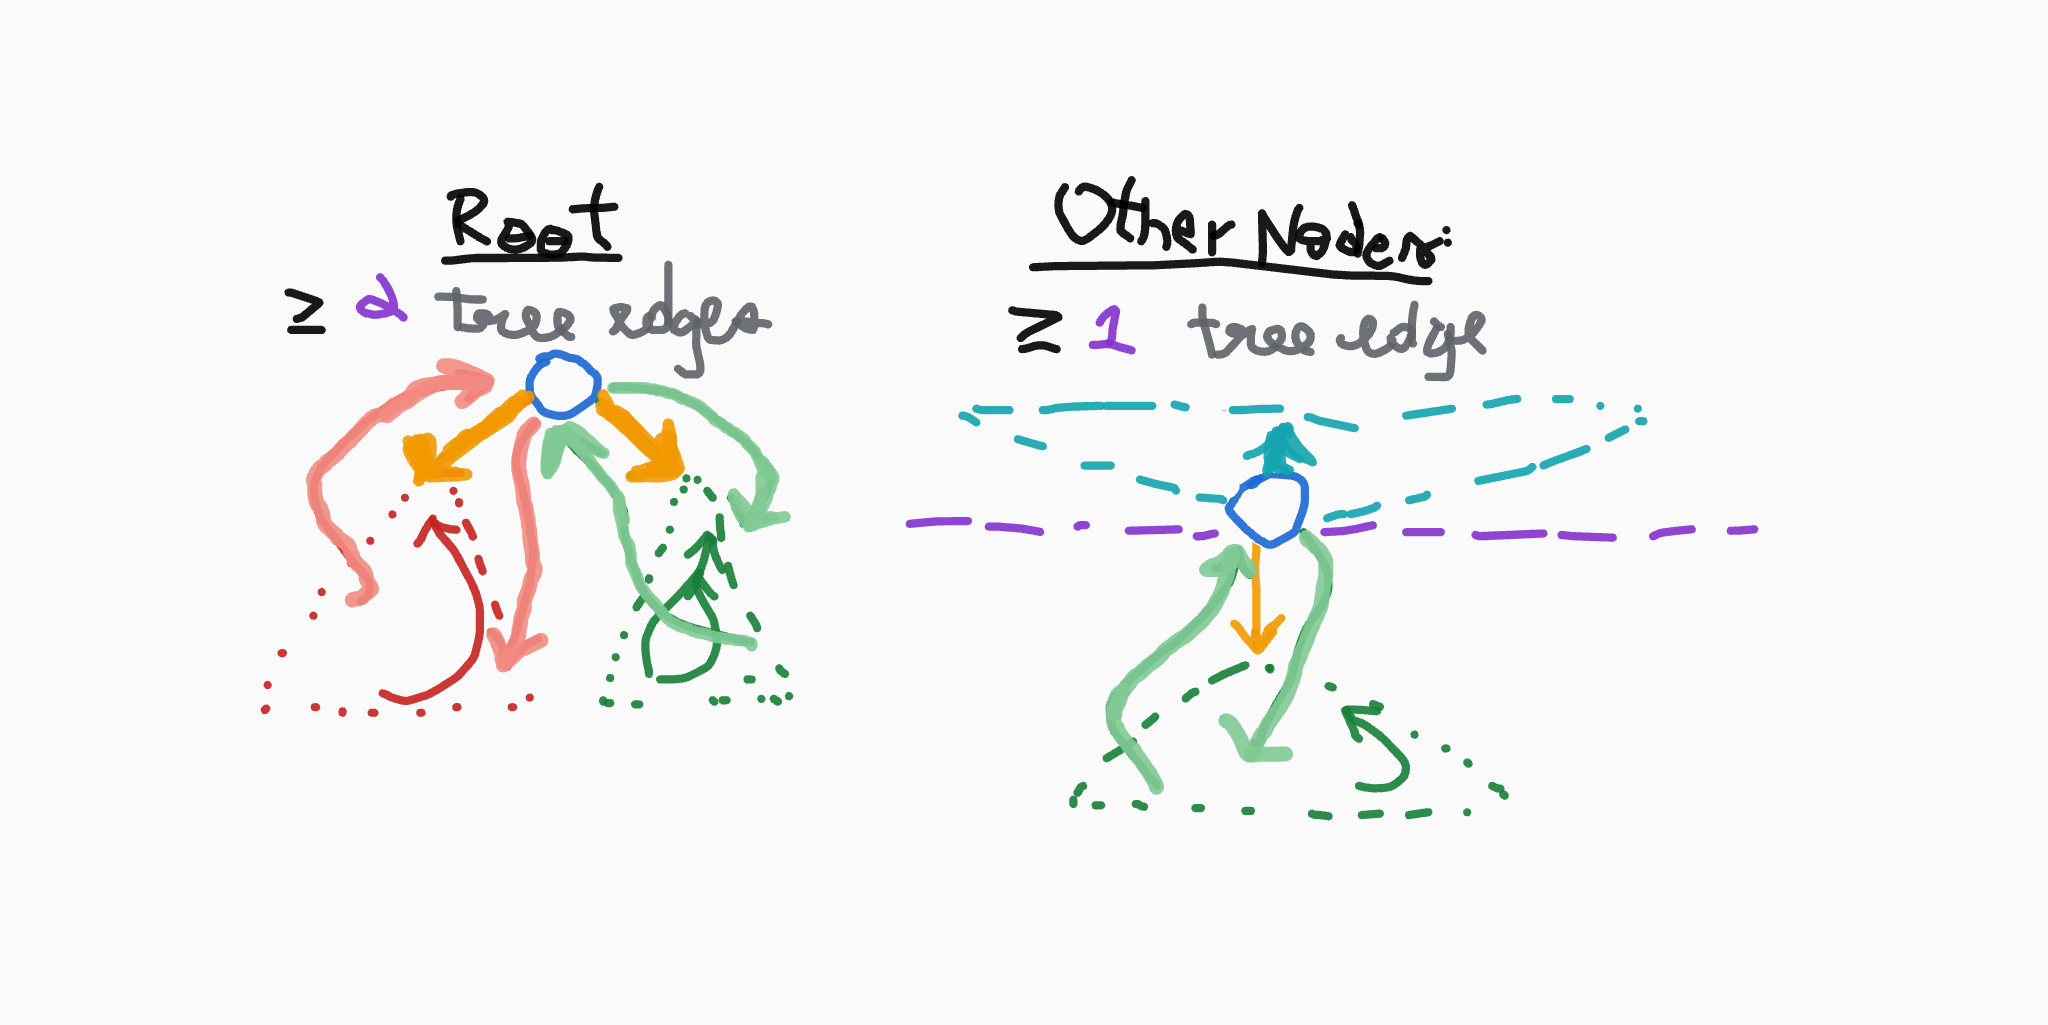 Root
≥ 2 tree edges
Other Nodes:
≥ 1 tree edge